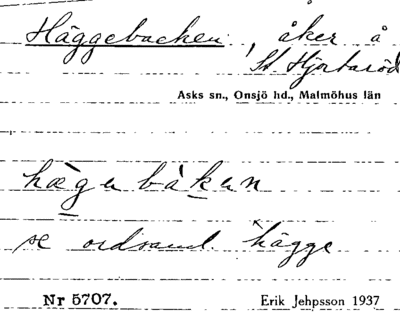 Häggebacken, åker å
St. Hjortaröd
Asks sn., Onsjö hd., Malmöhus län
hæ̀gebàken
se ordsaml. hägge
Nr 5707.
Erik Jehpsson 1937